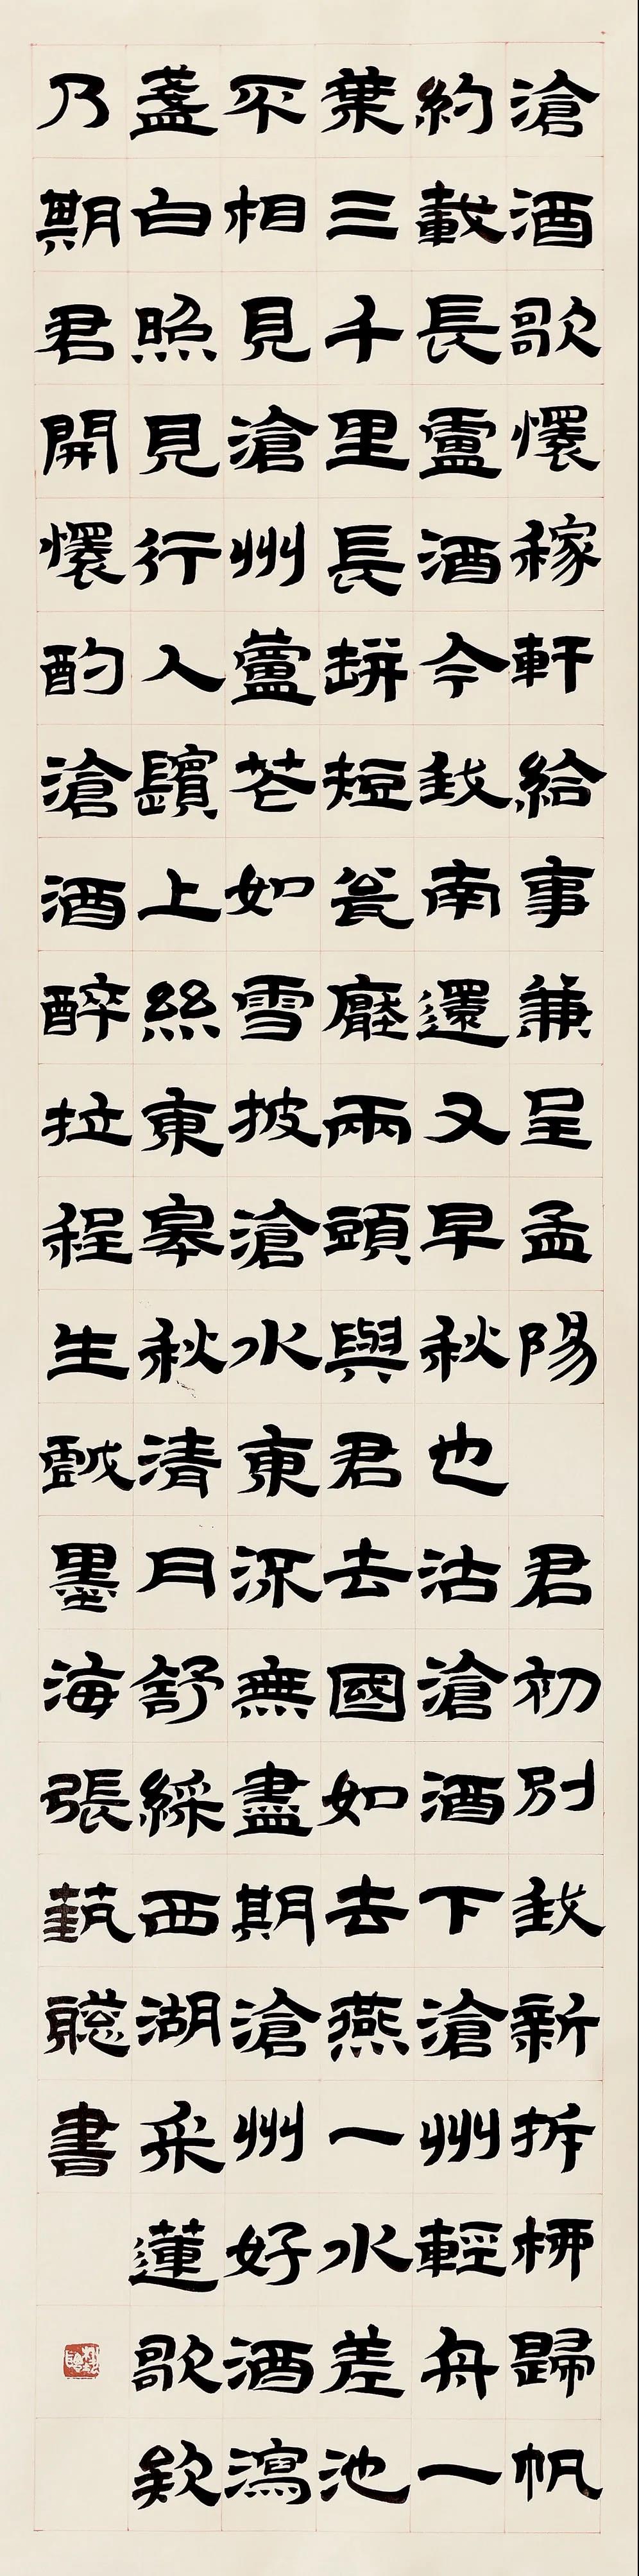 滄酒歌懷稼軒給事兼呈孟陽　君初別我新折柳歸帆
約載長盧酒今我南還又早秋也沽滄酒下滄州輕舟一
葉三千里長缾短瓮壓兩頭與君去國如去燕一水差池
不相見滄州蘆花如雪披滄水東流無盡期滄州好酒瀉
盞白照見行人鬢上絲東皋秋清月舒綵西湖采蓮歌欸
乃期君開懷酌滄酒醉拉程生戲墨海張藝聰書